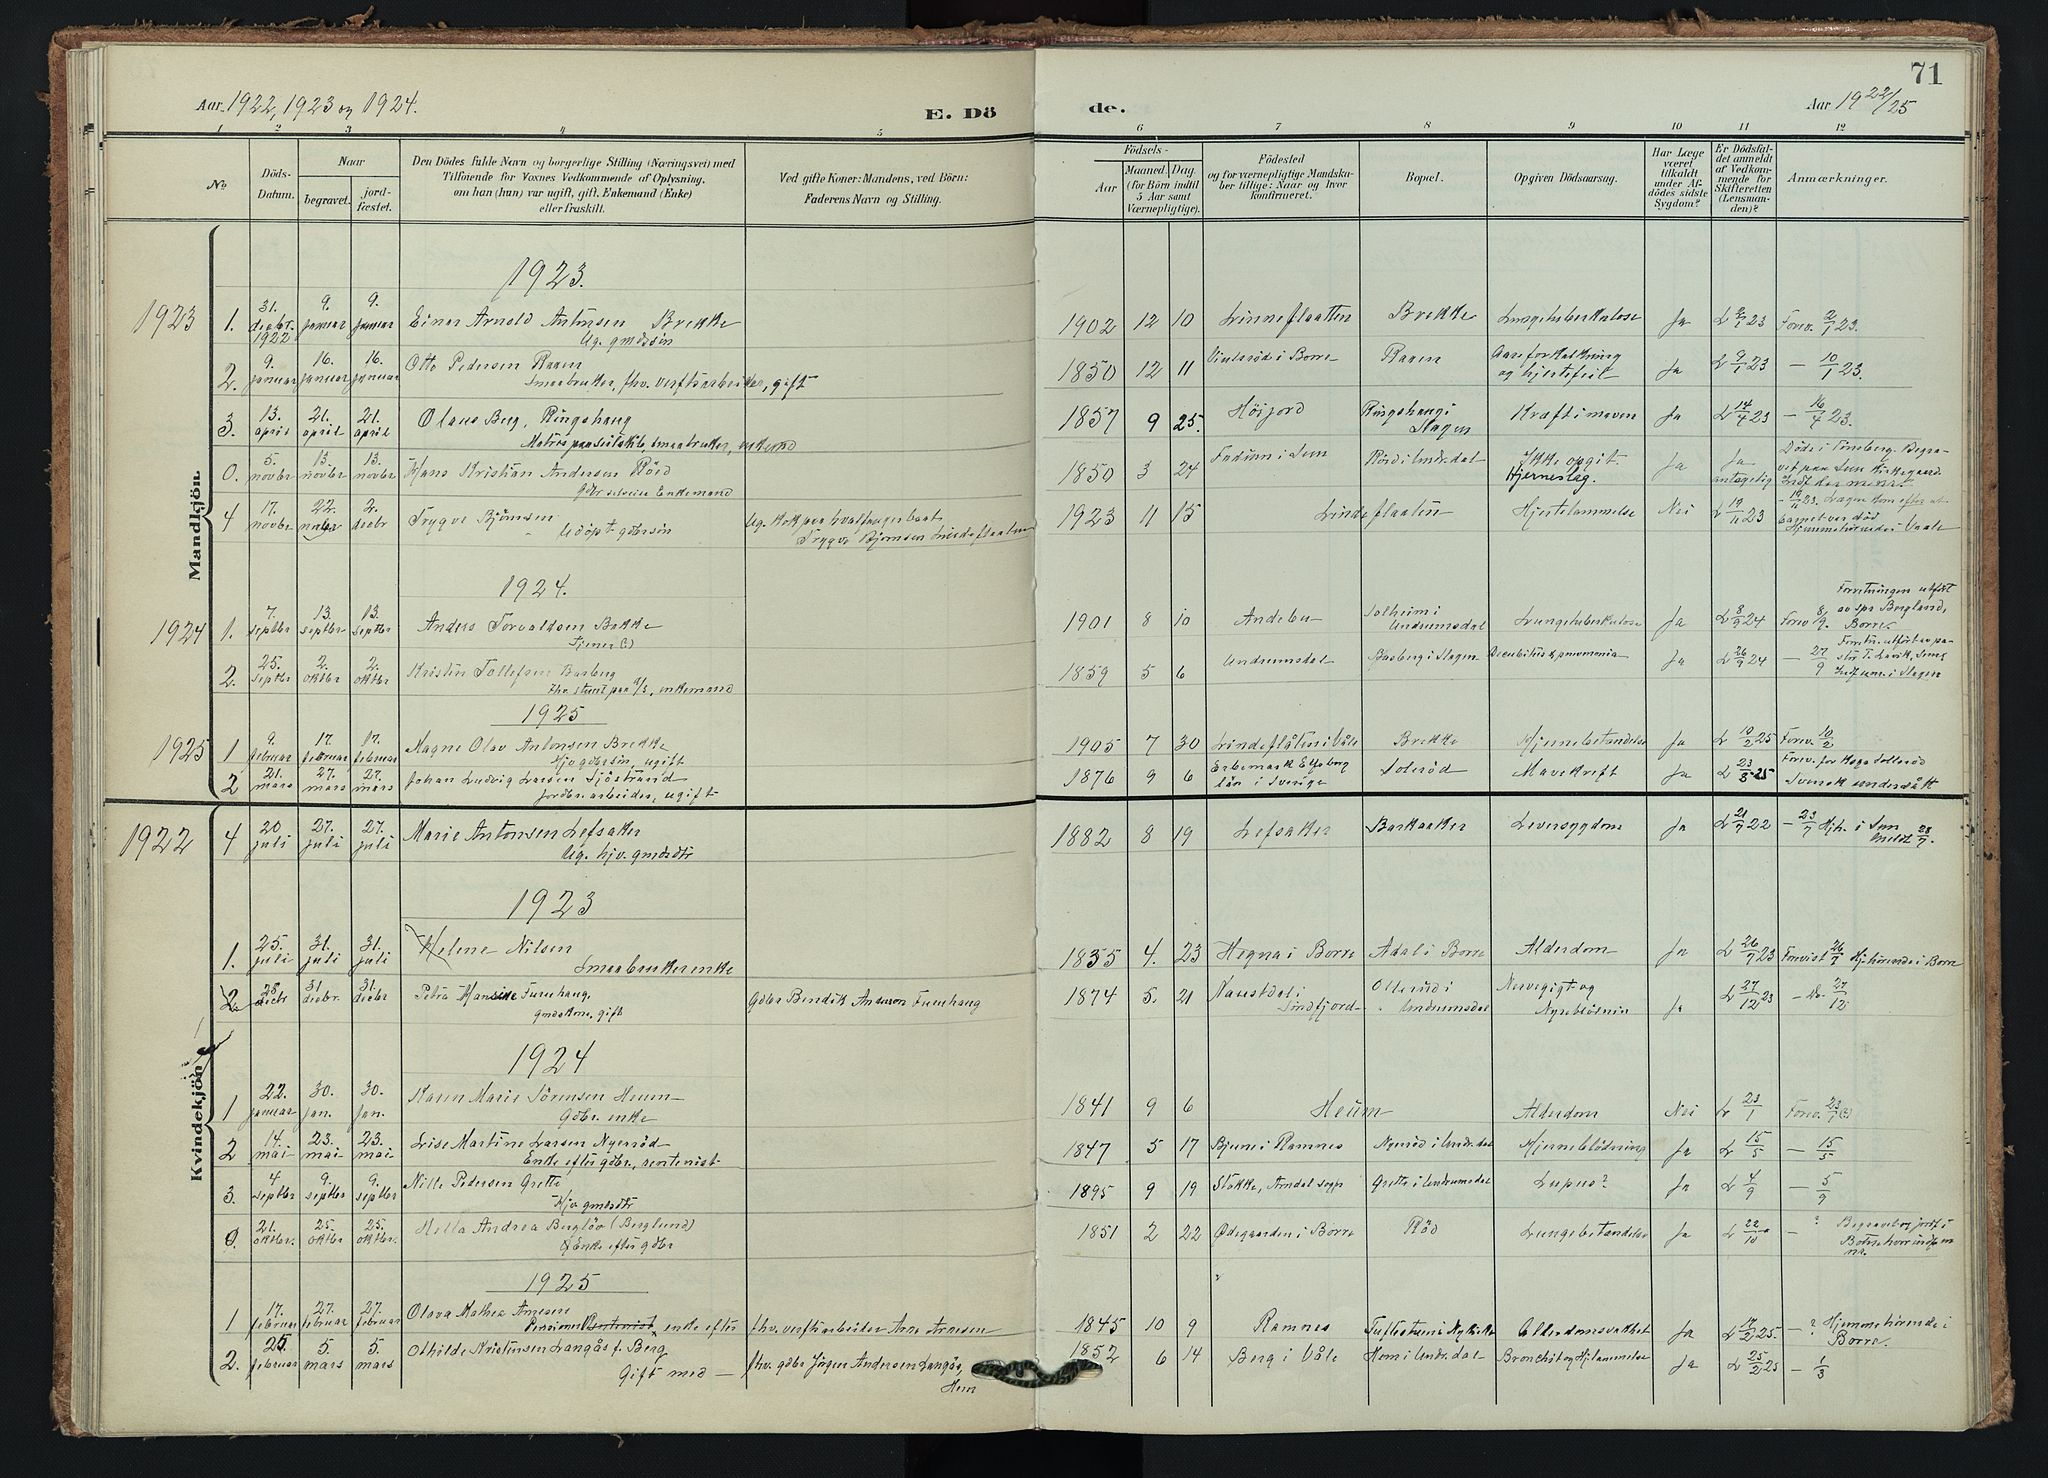 71
Aar 1922, 1923 og 1924.
E. Dö
de.
Aar 1922/25
1 2 3 4 5 6 7 8 9 10 11 12
No
Döds-Datum.
Naar
begravet.
jord-fæstet.
Den Dödes fulde Navn og borgerlige Stilling (Næringsvei) med
Tilföiende for Voxnes Vedkommende af Oplysning.
om han (hun) var ugift, gift, Enkemand (Enke)
eller fraskilt.
Ved gifte Koner: Mandens, ved Börn:
Faderens Navn og Stilling.
Födsels-
Aar
Maaned. Dag.
(for Börn indtil
5 Aar samt
Værnepligtige).
Födested
og for værnepligtige Mandska-
ber tillige: Naar og hvor
konfirmeret.
Bopæl.
Opgiven Dödsaarsag.
Har Læge
været
tilkaldt
under Af-
dödes sidste
Sygdom?
Er Dödsfal-
det anmeldt
af Vedkom-
mende for
Skifteretten
(Lensman-
den)?
Anmærkninger.
Mandkjön.
1923.
1923 1. 31. decbr. 1922 9. januar 9. januar Einar Arnold Antonsen Brekke
Ug. gmdssön
1902 12 10 Linneflaatten Brekke Lungetuberkulose Ja L 2/1 23 Forev. 2/1 23.
2. 9. januar 16. januar 16. januar Otto Pedersen Raaen
Smaabruker, fhv. verftsarbeider, gift
1850 12 11 i Borre Raaen Aareforkalkning
og hjertefeil Ja L 9/1 23 — 10/1 23.
3. 13. april 21. april 21. april Olaus Berg, Ringshaug
Matros paa seilskib, smaabruker,
1857 9 25. Höijord Ringshaug i
Slagen Kræft i maven Ja L 14/4 23 — 16/4 23.
0. 5. novbr 13. novbr 13. novbr Hans Kristian Andersen Röed
Gdbr. Enkemand
1850 3 24 i Sem Röed i Undr.dal Ikke opgit.
Hjerneslag. Ja Ja
antagelig Döde i Tönsberg. Begra-
vet paa Sem Kirkegaard.
4 17. novbr 22. novbr 2. decbr Trygve Björnsen
Udöpt gdbrsön
Ug. kok paa hvalfangerbaat
Trygve Bjørnsen Lindeflaaten
1923 11 15 Lindeflaaten Hjertelammelse Nei L 19/11 23 — 19/11 23. Lægen kom efter at
barnet var död
Hjemmehörende i Vaale
1924.
1924 1. 7. septbr 13. septbr 13. septbr Anders Torvaldsen Bakke
Tjener (?)
1901 8 10 Andebu Solheim i
Undrumsdal Lungetuberkulose Ja L 8/9 24 Forev 8/9. Forretningen utfört
av spr Bergland,
Borre.
2. 25. septbr 2. oktbr 2. oktbr Kristen Tollefsen Basberg
Fhv. stuert paa S/S, enkemand
1859 5 6 Undrumsdal Basberg i Slagen Decubitus & pneumonia Ja L 26/9 24 — 27/9 Forretn. utfört av pa-
stor T. Lavik, Sem.
i Slagen
1925
1925 1 9. februar 17. februar 17. februar Magne Olav Antonsen Brekke
Hjv. gdbrsön, ugift
1905 7 30 Lindeflåten i Våle Brekke Hjernebetændelse Ja L 10/2 25 Forev. 10/2
2 21. mars 27. mars 27. mars Johan Ludvig Larsen Sjöstrand
Jordbr.arbeider, ugift
1876 9 6 Erbemark Elfsborg
län i Sverige Solerød Mavekreft Ja L 23/3 25 Forev. for
Svensk undersått
Kvindekjön
1922 4 20 juli 27. juli 27. juli Marie Antonsen Lefsaker
Ug. hjv. gmdsdtr
1882 8 19 Lefsaker Barkaaker Leversygdom Ja L 21/7 22 — 23/7 Hjh. i Sem
meldt 28/7.
1923
1. 25. juli 31. juli 31. juli Helene Nilsen
Smaabrukerenke
1835 4. 23 Hegna i Borre Adal i Borre Alderdom Ja L 26/7 23 Forevist 26/7 Hj.hörende i Borre
2. 28 decbr 31. decbr. 31. decbr Petra Hansine Furuhaug,
gmdskone, gift
Gdbr Bendik Andersen Furuhaug
1874 5. 21 Naustdal i
Söndfjord Ollerød i
Undrumsdal Nervegigt og
Nyreblödnin Ja L 27/12 23 — Do. 27/12
1924
1 22. januar 30. jan. 30. jan. Karen Marie Sörensen Heum
Gdbr. enke
1841 9 6 Heum Alderdom Nei L 23/1 Forev. 23/1 (?)
2 14. mai 23. mai 23. mai Lise Martine Larsen Nyeröd
Enke efter gdbr., rentenist
1847 5 17 Bjune i Ramnes Nyeröd i Undr.dal Hjerneblödning Ja L 15/5 — 15/5
3. 4 septbr 9. septbr 9. septbr Nille Pedersen Grette
Hjv gmdsdtr
1895 9 19 Stokke, Arndal sogn Grette i Undrumsdal Lupus? Ja L 4/9 — 5/9
0. 21. oktbr. 25. oktbr 25. oktbr. Hella Andrea Berglöv (Berglund)
Enke efter gdbr
1851 2 22 Ödegaarden i Borre Röd Lungebetændelse Ja L 22/10 — ? Begravet og jordf. i
1925
1 17. februar 27. februar 27. februar Olava Mathea Arnesen
Pensioner Rentenist enke efter fhv. verftsarbeider Arne Arnesen
1845 10 9 Ramnes i Nykirke Alderdomssvakhet Ja L 17/2 25. — ? Hjemmehörende i
Borre.
2. 25. februar 5. mars 5. mars Othilde Kristensen Langås f. Berg
Gift med — fhv. gdbr Jörgen Andersen Langås,
Hem
1852 6 14 Berg i Våle Hem i Undr.dal Bronchit og Hj.lammelse Ja L 25/2 25 — 1/3